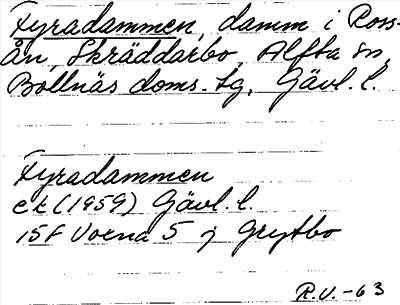 Fyradammen, damm i Ross-
ån, Skräddarbo, Alfta sn,
Bollnäs doms. tg, Gävl. l.
Fyradammen
ek (1959) Gävl. l.
15F Voxna 5 j Grytbo
R.V. -63